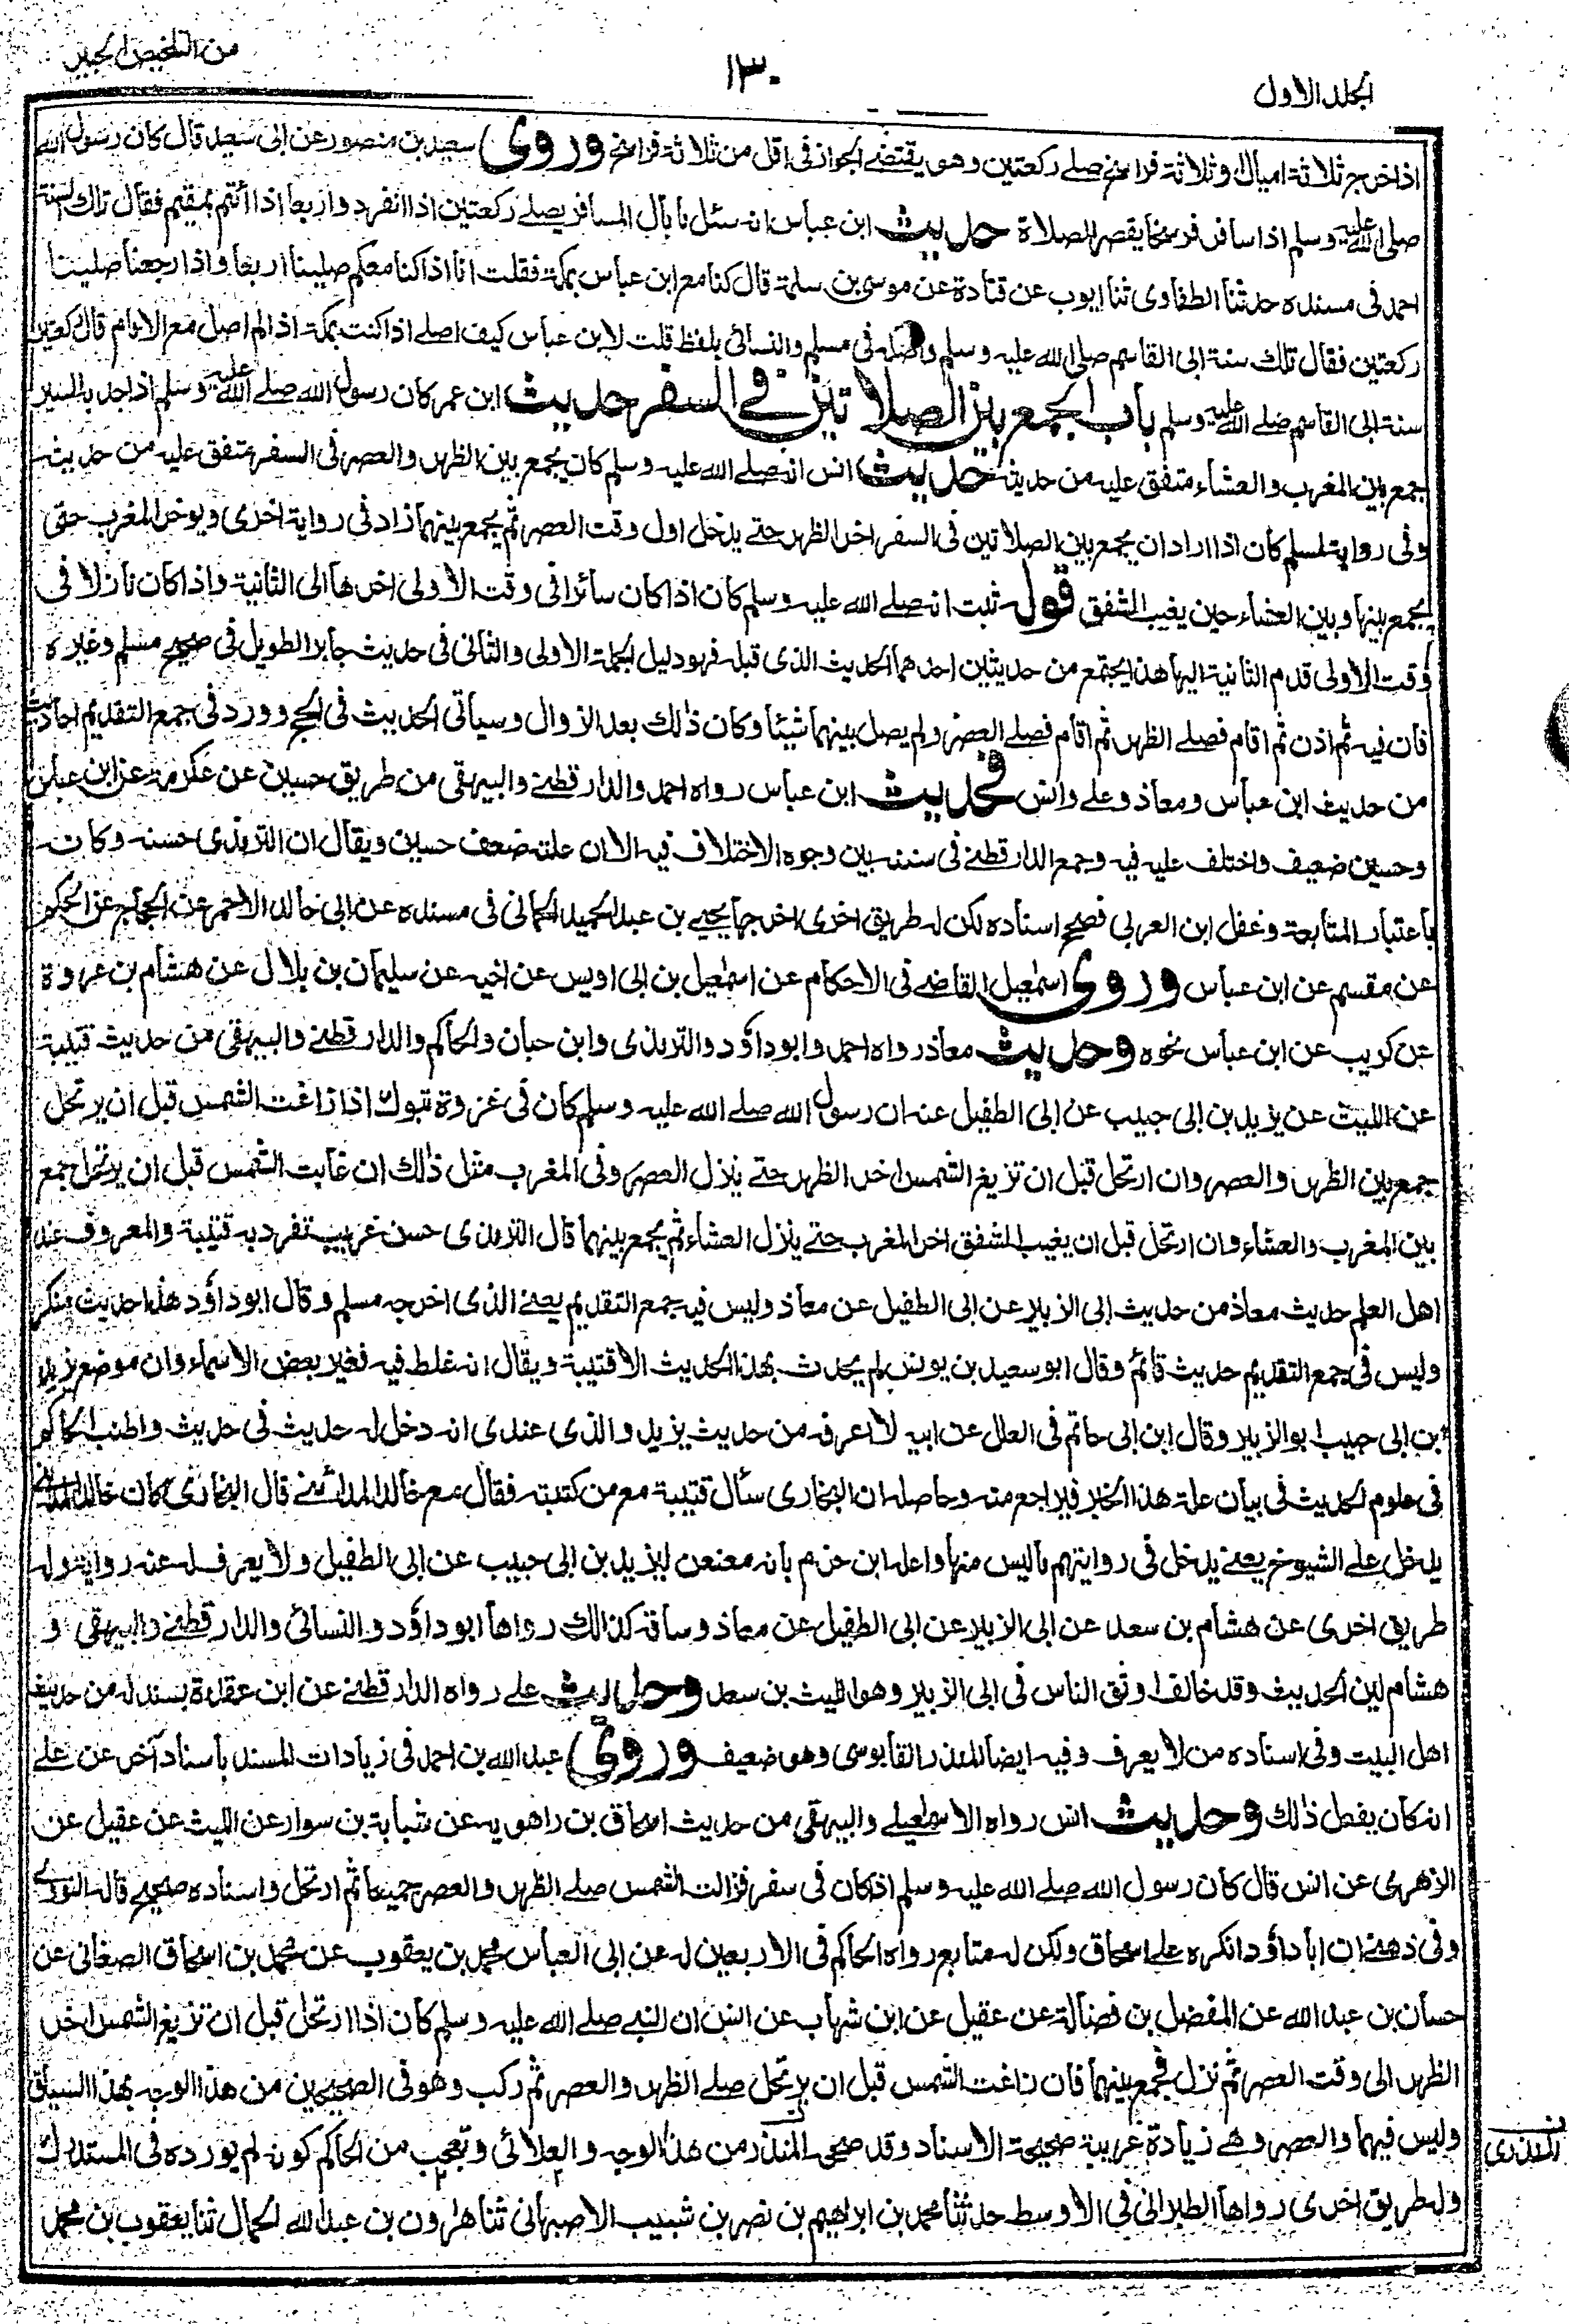 من التلخيص الحبير
١٣٠
الجلد الاول
اذا خرج ثلاثة اميال او ثلاثة فراسخ صلے ركعتين وهو يقتضے الجواز فى اقل من ثلاثة فراسخ وروى سعيد بن منصور عن ابى سعيد قال كان رسول الله
صلى الله عليه وسلم اذا سافر فرسخا يقصر الصلاة حديث ابن عباس انه سئل ما بال المسافر يصلے ركعتين اذا انفرد واربعا اذا ائتم بمقيم فقال تلك السنة
احمد فى مسنده حدثنا الطفاوى ثنا ايوب عن قتادة عن موسى بن سلمة قال كنا مع ابن عباس بمكة فقلت انا اذا كنا معكم صلينا اربعا واذا رجعنا صلينا
ركعتين فقال تلك سنة ابى القاسم صلى الله عليه وسلم واصله فى مسلم والنسائى بلفظ قلت لابن عباس كيف اصلے اذا كنت بمكة اذا لم اصل مع الامام قال ركعتين
سنة ابى القاسم صلے الله عليه وسلم باب الجمع بين الصلاتين فے السفر حديث ابن عمر كان رسول الله صلے الله عليه وسلم اذا جد به السير
جمع بين المغرب والعشاء متفق عليه من حديثه حديث انس انه صلے الله عليه وسلم كان يجمع بين الظهر والعصر فى السفر متفق عليه من حديثه
وفى رواية لمسلم كان اذا اراد ان يجمع بين الصلاتين فى السفر اخر الظهر حتے يدخل اول وقت العصر ثم يجمع بينهما زاد فى رواية اخرى ويوخر المغرب حتى
يجمع بينها وبين العشاء حين يغيب الشفق قوله ثبت انه صلے الله عليه وسلم كان اذا كان سائرا فى وقت الاولى اخرها الى الثانية واذا كان نازلا فى
وقت الاولى قدم الثانية اليها هذا يجتمع من حديثين احدهما الحديث الذى قبله فهو دليل الجملة الاولى والثانى فى حديث جابر الطويل فى صحيح مسلم وغيره
فان فيه ثم اذن ثم اقام فصلے الظهر ثم اقام فصلے العصر ولم يصل بينهما شيئا وكان ذلك بعد الزوال وسياتى الحديث فى الحج وورد فى جمع التقديم احاديث
من حديث ابن عباس ومعاذ وعلے وانس فحديث ابن عباس رواه احمد والدارقطنے والبيهقى من طريق حسين عن عكرمة عن ابن عباس
وحسين ضعيف واختلف عليه فيه وجمع الدارقطنے فى سننه بين وجوه الاختلاف فيه الا ان علته ضعف حسين ويقال ان الترمذى حسنه وكانه
باعتبار المتابعة وغفل ابن العربى فصحح اسناده لكن له طريق اخرى اخرجها يحيے بن عبد الحميد الحمانى فى مسنده عن ابى خالد الاحمر عن الحجاج عن الحكم
عن مقسم عن ابن عباس وروى اسمعيل القاضے فى الاحكام عن اسمعيل بن ابى اويس عن اخيه عن سليمان بن بلال عن هشام بن عروة
عن كريب عن ابن عباس نحوه وحديث معاذ رواه احمد وابو داؤد والترمذى وابن حبان والحاكم والدارقطنے والبيهقى من حديث قتيبة
عن الليث عن يزيد بن ابى حبيب عن ابى الطفيل عنه ان رسول الله صلے الله عليه وسلم كان فى غزوة تبوك اذا زاغت الشمس قبل ان يرتحل
جمع بين الظهر والعصر وان ارتحل قبل ان تزيغ الشمس اخر الظهر حتے ينزل العصر وفى المغرب مثل ذلك ان غابت الشمس قبل ان يرتحل جمع
بين المغرب والعشاء وان ارتحل قبل ان يغيب الشفق اخر المغرب حتے ينزل العشاء ثم يجمع بينهما قال الترمذى حسن غريب تفرد به قتيبة والمعروف عند
اهل العلم حديث معاذ من حديث ابى الزبير عن ابى الطفيل عن معاذ وليس فيه جمع التقديم يعنے الذى اخرجه مسلم وقال ابو داؤد هذا حديث منكر
وليس فى جمع التقديم حديث قائم وقال ابو سعيد بن يونس لم يحدث بهذا الحديث الا قتيبة ويقال انه غلط فيه فغير بعض الاسماء وان موضع يزيد
بن ابى حبيب ابو الزبير وقال ابن ابى حاتم فى العلل عن ابيه لا اعرفه من حديث يزيد والذى عندى انه دخل له حديث فى حديث واطنب الحاكم
فى علوم الحديث فى بيان علة هذا الخبر فيراجع منه وحاصله ان البخارى سأل قتيبة مع من كتبته فقال مع خالد المدائنے قال البخارى كان خالد المدائنے
يدخل علے الشيوخ يعنے يدخل فى روايتهم ما ليس منها واعله ابن حزم بانه معنعن ليزيد بن ابى حبيب عن ابى الطفيل ولا يعرف له عنه رواية وله
طريق اخرى عن هشام بن سعد عن ابى الزبير عن ابى الطفيل عن معاذ وساقه كذالك رواها ابو داؤد والنسائى والدارقطنے والبيهقى و
هشام لين الحديث وقد خالف اوثق الناس فى ابى الزبير وهو الليث بن سعد وحديث علے رواه الدارقطنے عن ابن عقدة بسند له من حديث
اهل البيت وفى اسناده من لا يعرف وفيه ايضا المنذر القابوسى وهو ضعيف وروى عبد الله بن احمد فى زيادات المسند باسناد آخر عن علے
انه كان يفعل ذلك وحديث انس رواه الاسمعيلے والبيهقى من حديث اسحاق بن راهويه عن شبابة بن سوار عن الليث عن عقيل عن
الزهرى عن انس قال كان رسول الله صلے الله عليه وسلم اذا كان فى سفر فزالت الشمس صلے الظهر والعصر جميعا ثم ارتحل واسناده صحيح قاله النووے
وفى ذهنے ان ابا داؤد انكره علے اسحاق ولكن له متابع رواه الحاكم فى الاربعين له عن ابى العباس محمد بن يعقوب عن محمد بن اسحاق الصغانى عن
حسان بن عبد الله عن المفضل بن فضالة عن عقيل عن ابن شهاب عن انس ان النبے صلے الله عليه وسلم كان اذا ارتحل قبل ان تزيغ الشمس اخر
الظهر الى وقت العصر ثم نزل فجمع بينهما فان زاغت الشمس قبل ان يرتحل صلے الظهر والعصر ثم ركب وهو فى الصحيحين من هذا الوجه بهذا السياق
وليس فيهما والعصر وهے زيادة غريبة صحيحة الاسناد وقد صححه المنذر من هذا الوجه والعلائى وتعجب من الحاكم كونه لم يورده فى المستدرك
المنذرى
وله طريق اخرى رواها الطبرانى فى الاوسط حدثنا محمد بن ابراهيم بن نصر بن شبيب الاصبهانى ثنا هارون بن عبد الله الحمال ثنا يعقوب بن محمد